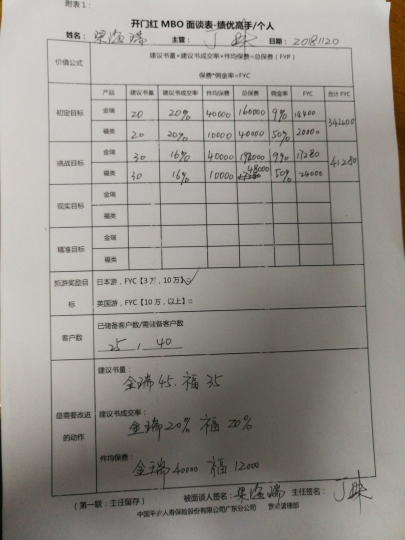 附表1：
开门红 MBO 面谈表-绩优高手/个人
姓名： 主管： 日期：20181120
价值公式 建议书量×建议书成交率×件均保费=总保费（FYP）
保费*佣金率=FYC
产品 建议书量 建议书成交率 件均保费 总保费 佣金率 FYC 合计 FYC
初定目标 金瑞 20 20% 40000 160000 9% 14400
福类 20 20% 10000 40000 50% 20000
挑战目标 金瑞 30 16% 40000 192000 9% 17280 41280
福类 30 16% 10000 48000 50% 24000
现实目标 金瑞
福类
精准目标 金瑞
福类
旅游奖励目标 日本游，FYC【3万，10万】✓
英国游，FYC【10万，以上】
客户数 已储备客户数/需储备客户数
25 / 40
建议书量：
金瑞45. 福35
您需要改进的动作 建议书成交率：
金瑞20% 福20%
件均保费：
金瑞40000 福12000
（第一联：主任留存） 被面谈人签名： 主任签名：
中国平安人寿保险股份有限公司广东分公司